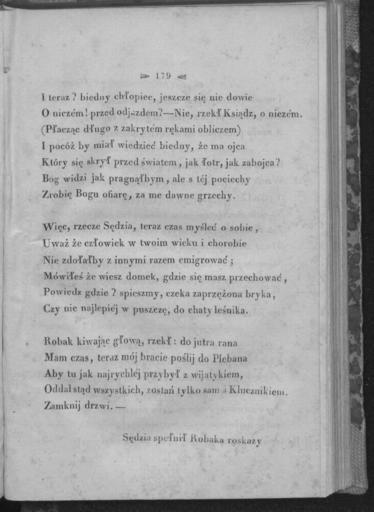 179
I teraz? biedny chłopiec, jeszcze się nie dowie
O niczém! przed odjazdem?—Nie, rzekł Ksiądz, o niczém.
(Płacząc długo z zakrytém rękami obliczem)
I pocóż by miał wiedzieć biedny, że ma ojca
Który się skrył przed światem, jak łotr, jak zabojca?
Bog widzi jak pragnąłbym, ale s téj pociechy
Zrobię Bogu ofiarę, za me dawne grzechy.
Więc, rzecze Sędzia, teraz czas myśleć o sobie,
Uważ że człowiek w twoim wieku i chorobie
Nie zdołałby z innymi razem emigrować;
Mówiłeś że wiesz domek, gdzie się masz przechować,
Powiedz gdzie? spieszmy, czeka zaprzężona bryka,
Czy nie najlepiéj w puszczę, do chaty leśnika.
Robak kiwając głową, rzekł: do jutra rana
Mam czas, teraz mój bracie poślij do Plebana
Aby tu jak najrychléj przybył z wijatykiem,
Oddal stąd wszystkich, zostań tylko sam z Klucznikiem.
Zamknij drzwi. —
Sędzia spełnił Robaka roskazy